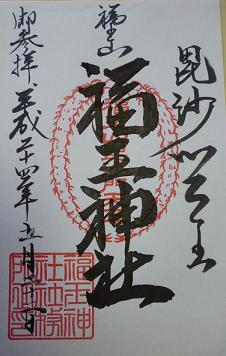 毘沙門天王
福王山
福王神社
御参拝 平成二十四年 月 日
福王神
社社務
所之印